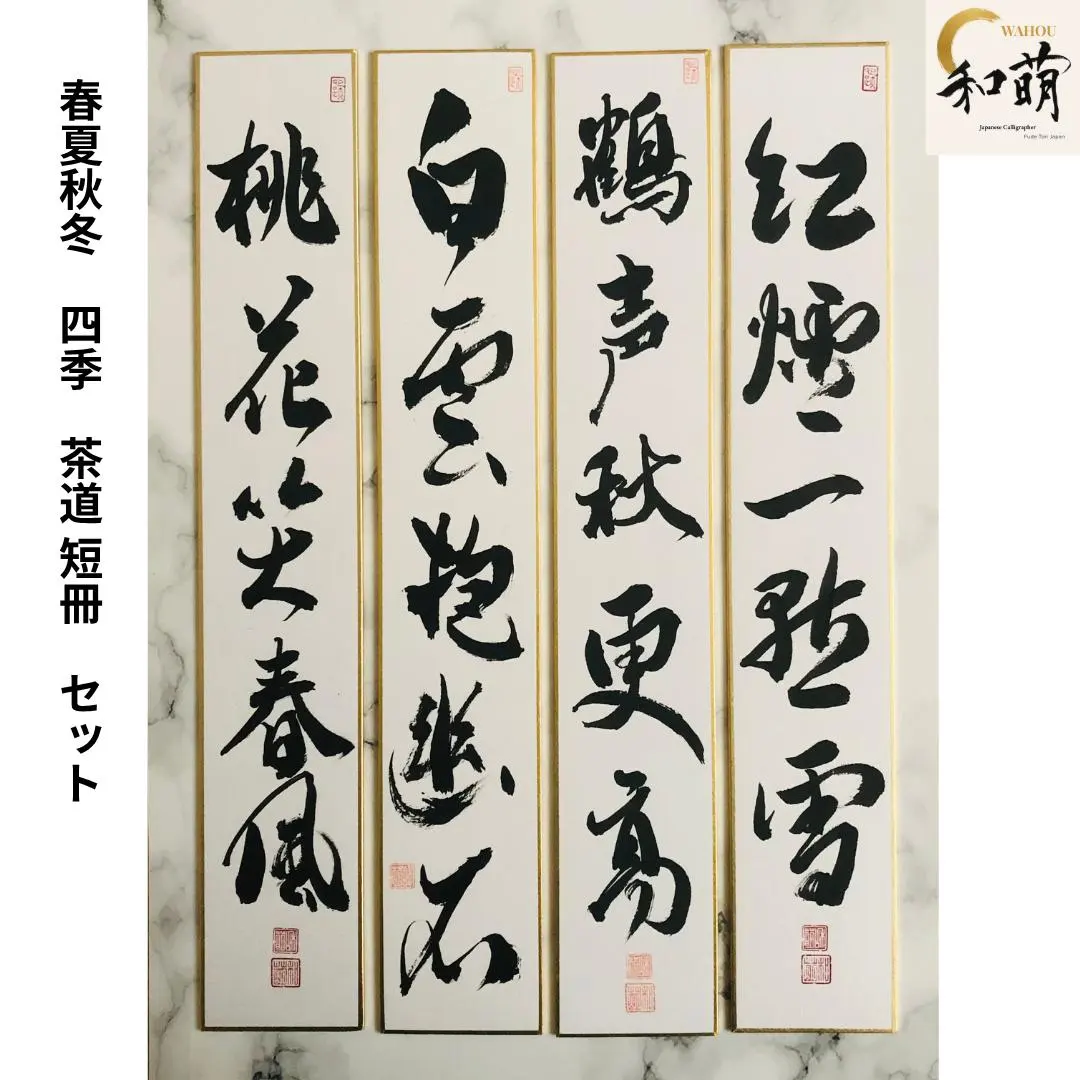 春夏秋冬 四季 茶道 短冊 セット
桃花笑春風
白雲抱幽石
鶴声秋更高
紅爐一點雪
WAHOU
和萌
Japanese Calligrapher
Fude Tori Japan